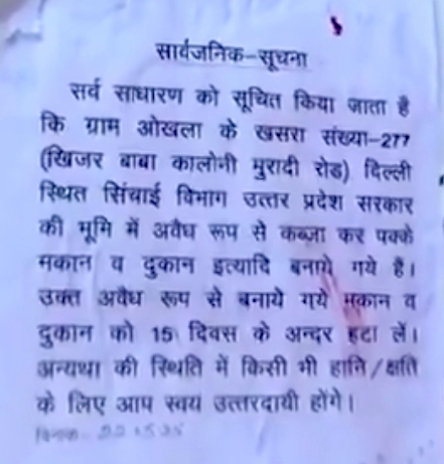 सार्वजनिक-सूचना
सर्व साधारण को सूचित किया जाता है
कि ग्राम ओखला के खसरा संख्या-277
(खिजर बाबा कालोनी मुरादी रोड) दिल्ली
स्थित सिंचाई विभाग उत्तर प्रदेश सरकार
की भूमि में अवैध रूप से कब्ज़ा कर पक्के
मकान व दुकान इत्यादि बनाये गये है।
उक्त अवैध रूप से बनाये गये मकान व
दुकान को 15 दिवस के अन्दर हटा लें।
अन्यथा की स्थिति में किसी भी हानि/क्षति
के लिए आप स्वयं उत्तरदायी होंगे।
दिनांक-